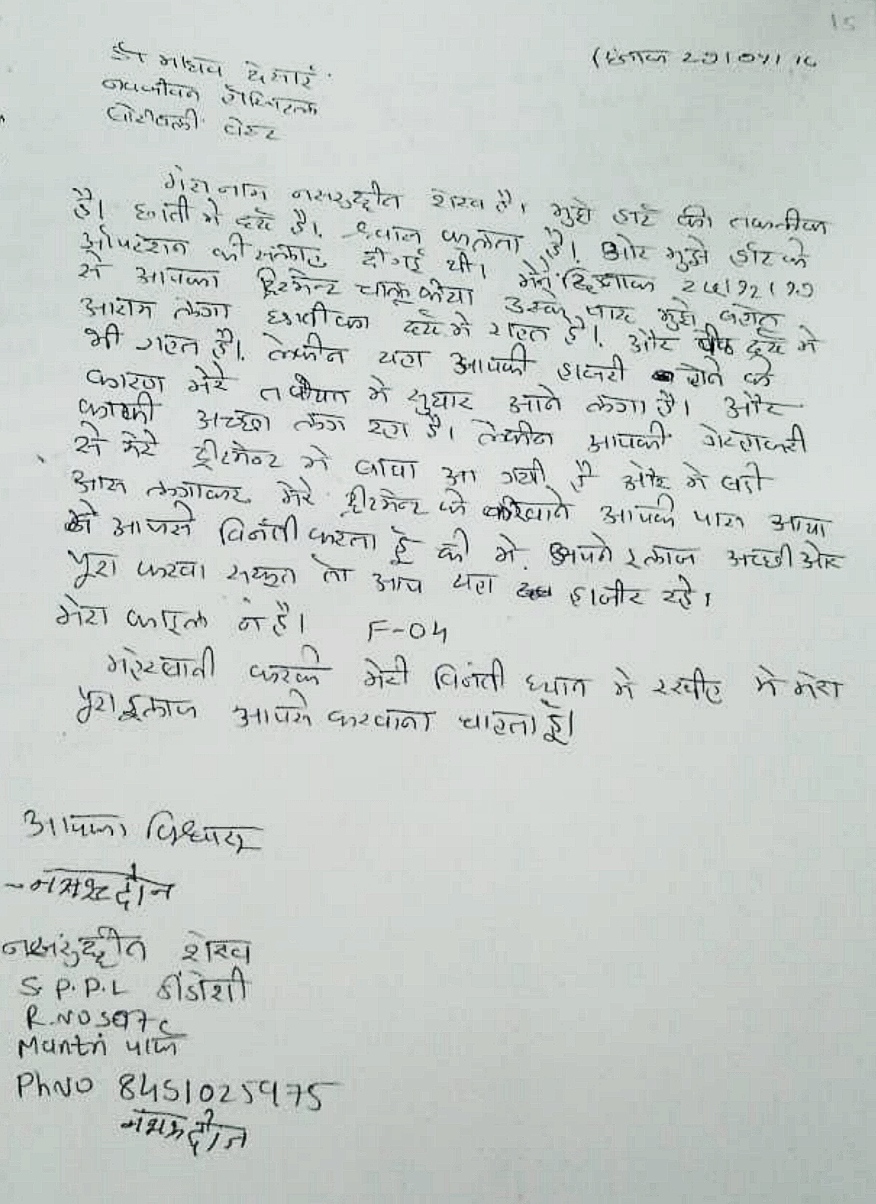 15
दिनांक
डॉ माधव देसाई
नवजीवन हॉस्पिटल
बोरीवली वेस्ट
मेरा नाम नसरुद्दीन शेख है। मुझे हार्ट की तकलीफ
है। छाती मे दर्द है। श्वास फुलता है। और मुझे हार्ट के
ऑपरेशन की सलाह दी गई थी। मैने दिनांक
से आपका ट्रिटमेन्ट चालू किया उसके बाद मुझे बहोत
आराम लगा छातीका दर्द मे राहत है। और दर्द मे
भी राहत है। लेकीन यहा आपकी हाजरी होने के
कारण मेरे तबीयत मे सुधार आने लगा है। और
काफी अच्छा लग रहा है। लेकीन आपकी गेरहाजरी
से मेरे ट्रीटमेन्ट मे बाधा आ गयी है और मे बडी
आस लगाकर मेरे ट्रीटमेन्ट को करवाने आपके पास आया
आपसे विनंती करता हूँ की मे अपने इलाज अच्छी और
पूरा करवा सकुत तो आप यहा हाजीर रहे।
मेरा फाईल नं है। F-04
महेरबानी करके मेरी विनंती ध्यान मे रखीए मे मेरा
पूरा इलाज आपसे करवाना चाहता हूँ।
आपका विश्वासू
नसरुद्दीन
नसरुद्दीन शेख
S.P.P.L दिंडोशी
R.NO
Mantri पार्क
PhNO 8451025975
नसरुद्दीन